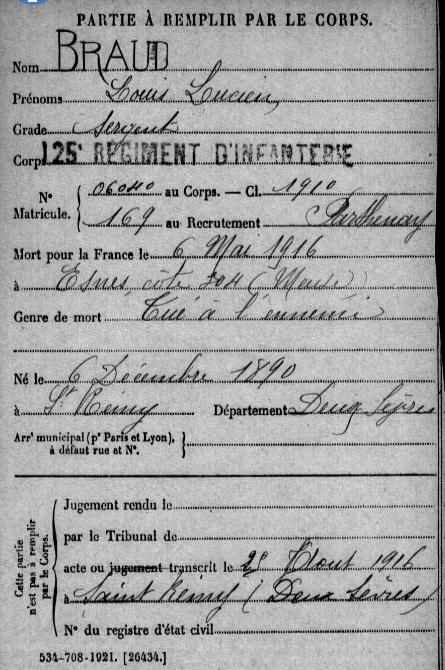 PARTIE À REMPLIR PAR LE CORPS.
Nom BRAUD
Prénoms Louis Lucien
Grade Sergent
Corps 125e RÉGIMENT D'INFANTERIE
N° Matricule. { 06040 au Corps. — Cl. 1910
169 au Recrutement Parthenay
Mort pour la France le 6 Mai 1916
à Esnes, côte 304 (Meuse)
Genre de mort Tué à l'ennemi
Né le 6 Décembre 1890
à St Rémy Département Deux Sèvres
Arrt municipal (pr Paris et Lyon), à défaut rue et N°. }
Cette partie n'est pas à remplir par le Corps. {
Jugement rendu le
par le Tribunal de
acte ou jugement transcrit le Août 1916
à Saint Rémy (Deux Sèvres)
N° du registre d'état civil
534-708-1921. [26434.]